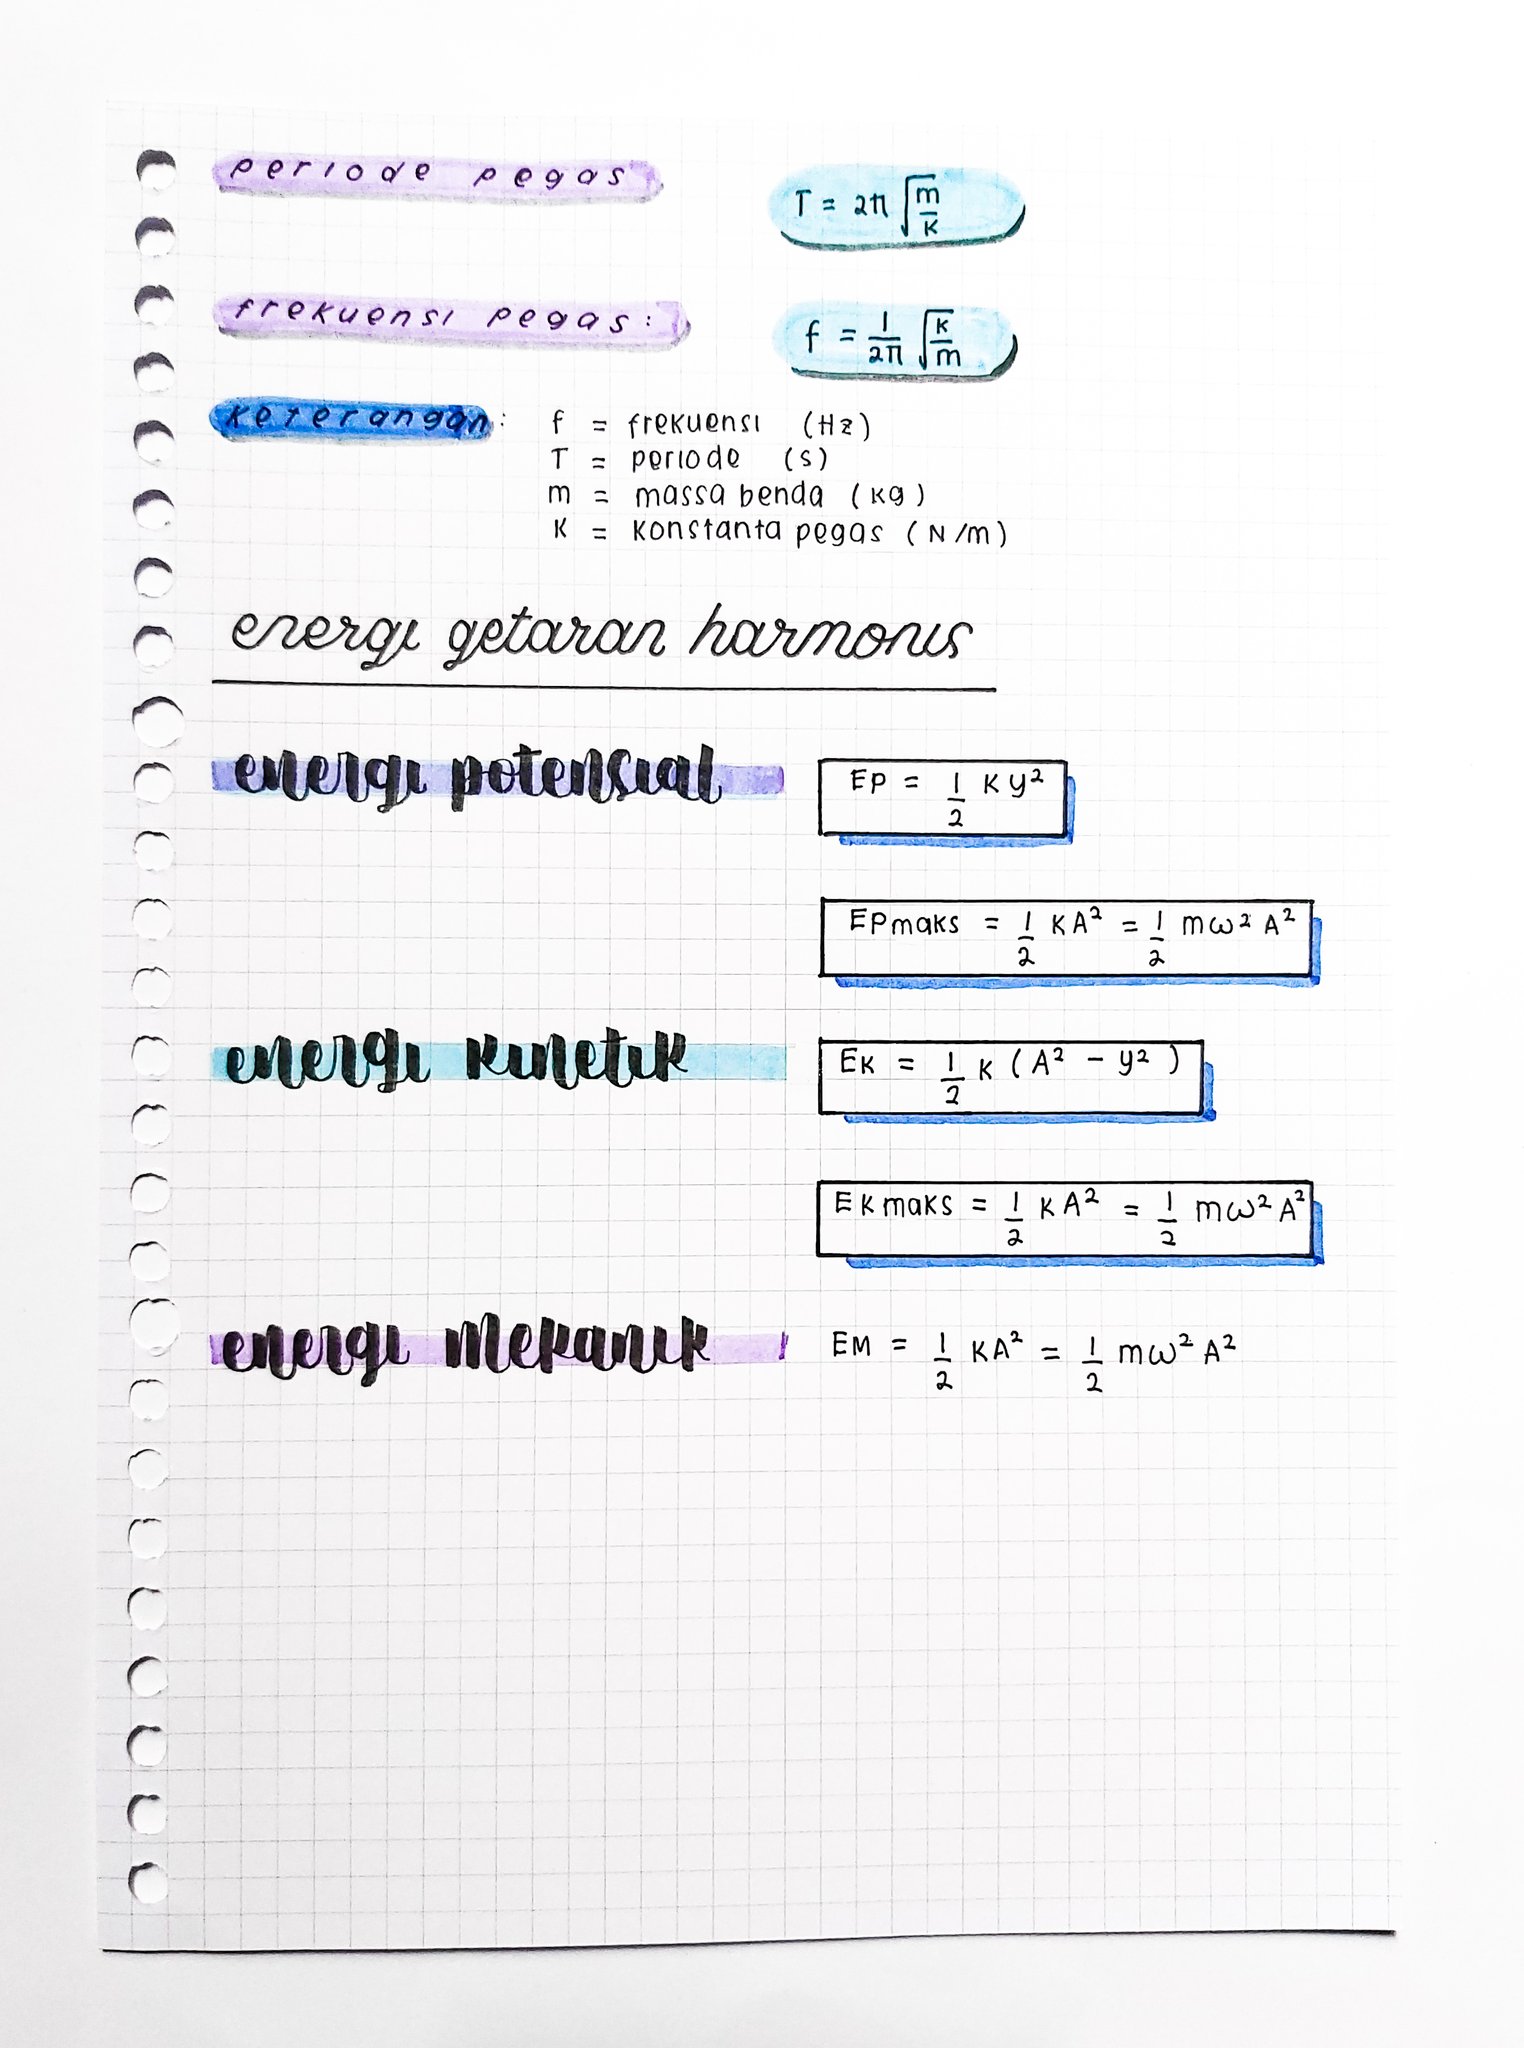 periode pegas
T = 2π √m/k
frekuensi pegas:
f = 1/2π √k/m
keterangan: f = frekuensi (Hz)
T = periode (s)
m = massa benda (kg)
k = konstanta pegas (N/m)
energi getaran harmonis
energi potensial EP = 1/2 k y²
EPmaks = 1/2 kA² = 1/2 mω² A²
energi kinetik EK = 1/2 k (A² - y²)
EKmaks = 1/2 kA² = 1/2 mω² A²
energi mekanik EM = 1/2 kA² = 1/2 mω² A²